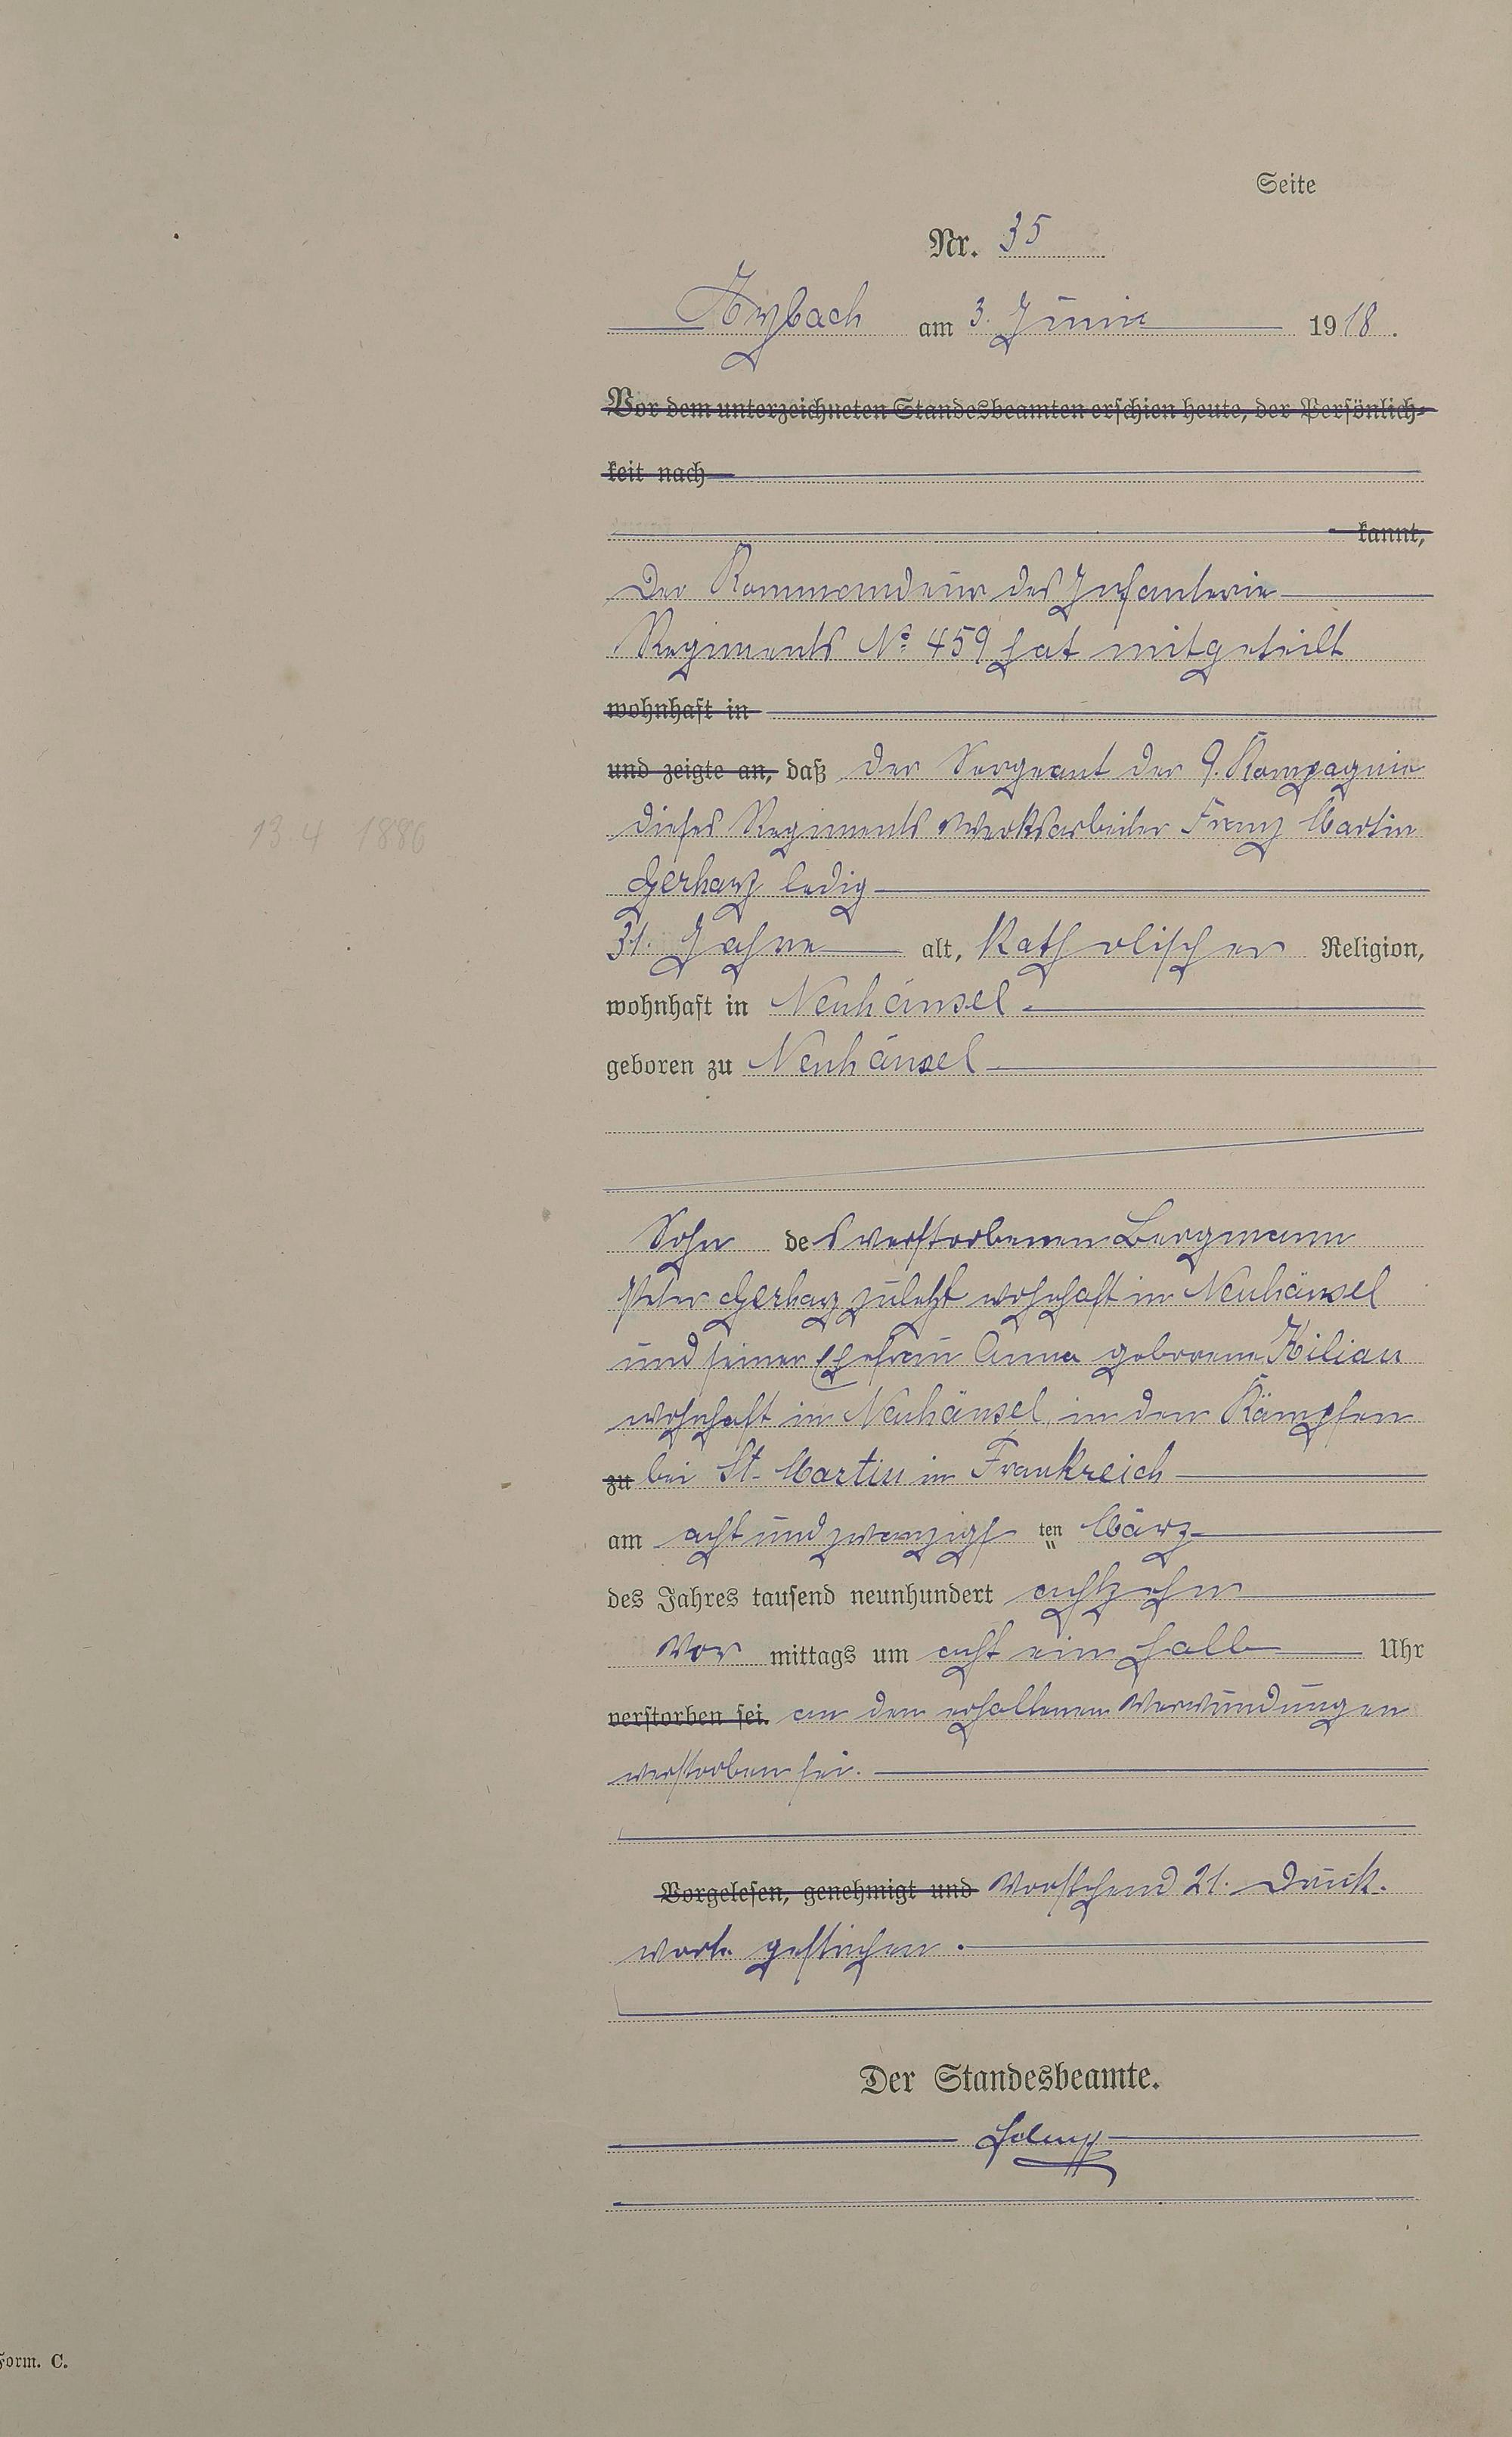 Seite
Nr. 35
Arzbach am 3. Juni 1918.
Vor dem unterzeichneten Standesbeamten erschien heute, der Persönlich-
keit nach
kannt,
Der Kommandeur des Infanterie
Regiments No. 459 hat mitgeteilt
wohnhaft in
und zeigte an, daß der Sergeant der 9. Kompagnie
dieses Regiments Werksarbeiter Franz Martin
13. 4 1886
Gerharz ledig
31. Jahre alt, Katholischer Religion,
wohnhaft in Neuhäusel
geboren zu Neuhäusel
Sohn des verstorbenen Bergmann
Peter Gerharz zuletzt wohnhaft in Neuhäusel
und seiner Ehefrau Anna geborene Kilian
wohnhaft in Neuhäusel in den Kämpfen
zu bei St. Martin in Frankreich
am acht und zwanzigs ten März
des Jahres tausend neunhundert achtzehn
Vor mittags um acht ein halb Uhr
verstorben sei. an den erhaltenen Verwundungen
verstorben sei.
Vorgelesen, genehmigt und Vorstehend 21. Druck-
worte gestrichen.
Der Standesbeamte.
Form. C.